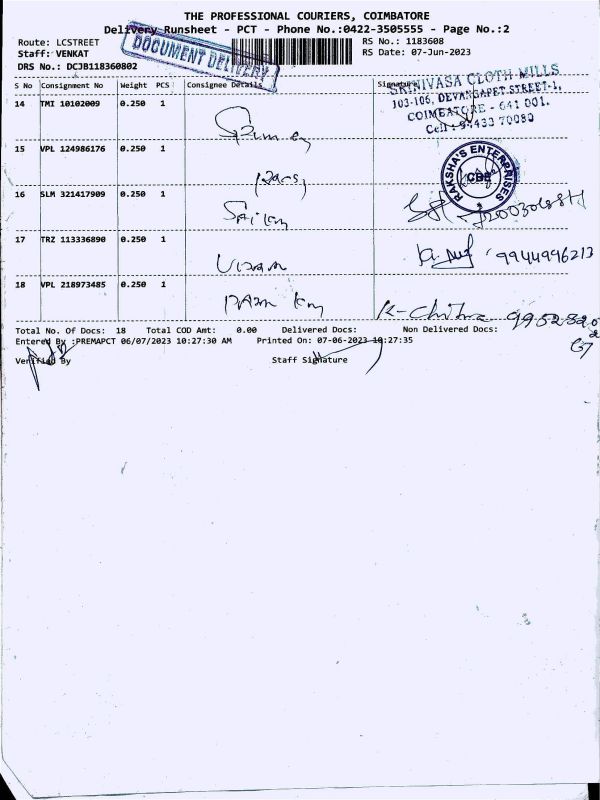 THE PROFESSIONAL COURIERS, COIMBATORE
Delivery Runsheet - PCT - Phone No.:0422-3505555 - Page No.:2
Route: LCSTREET
RS No.: 1183608
Staff: VENKAT
RS Date: 07-Jun-2023
DRS No.: DCJB118360802
DOCUMENT DELIVERY
S No Consignment No Weight PCS Consignee Details Signature
SRINIVASA CLOTH MILLS
103-106, DEVANGAPET STREET-1,
COIMBATORE - 641 001.
Cell : 94433 70080
14 TMI 10102009 0.250 1
15 VPL 124986176 0.250 1
RAKSHA'S ENTERPRISES
CBE
16 SLM 321417909 0.250 1
17 TRZ 113336890 0.250 1
9944996213
18 VPL 218973485 0.250 1
K-Chitra
Total No. Of Docs: 18 Total COD Amt: 0.00 Delivered Docs: Non Delivered Docs:
Entered By :PREMAPCT 06/07/2023 10:27:30 AM Printed On: 07-06-2023 10:27:35
Verified By Staff Signature